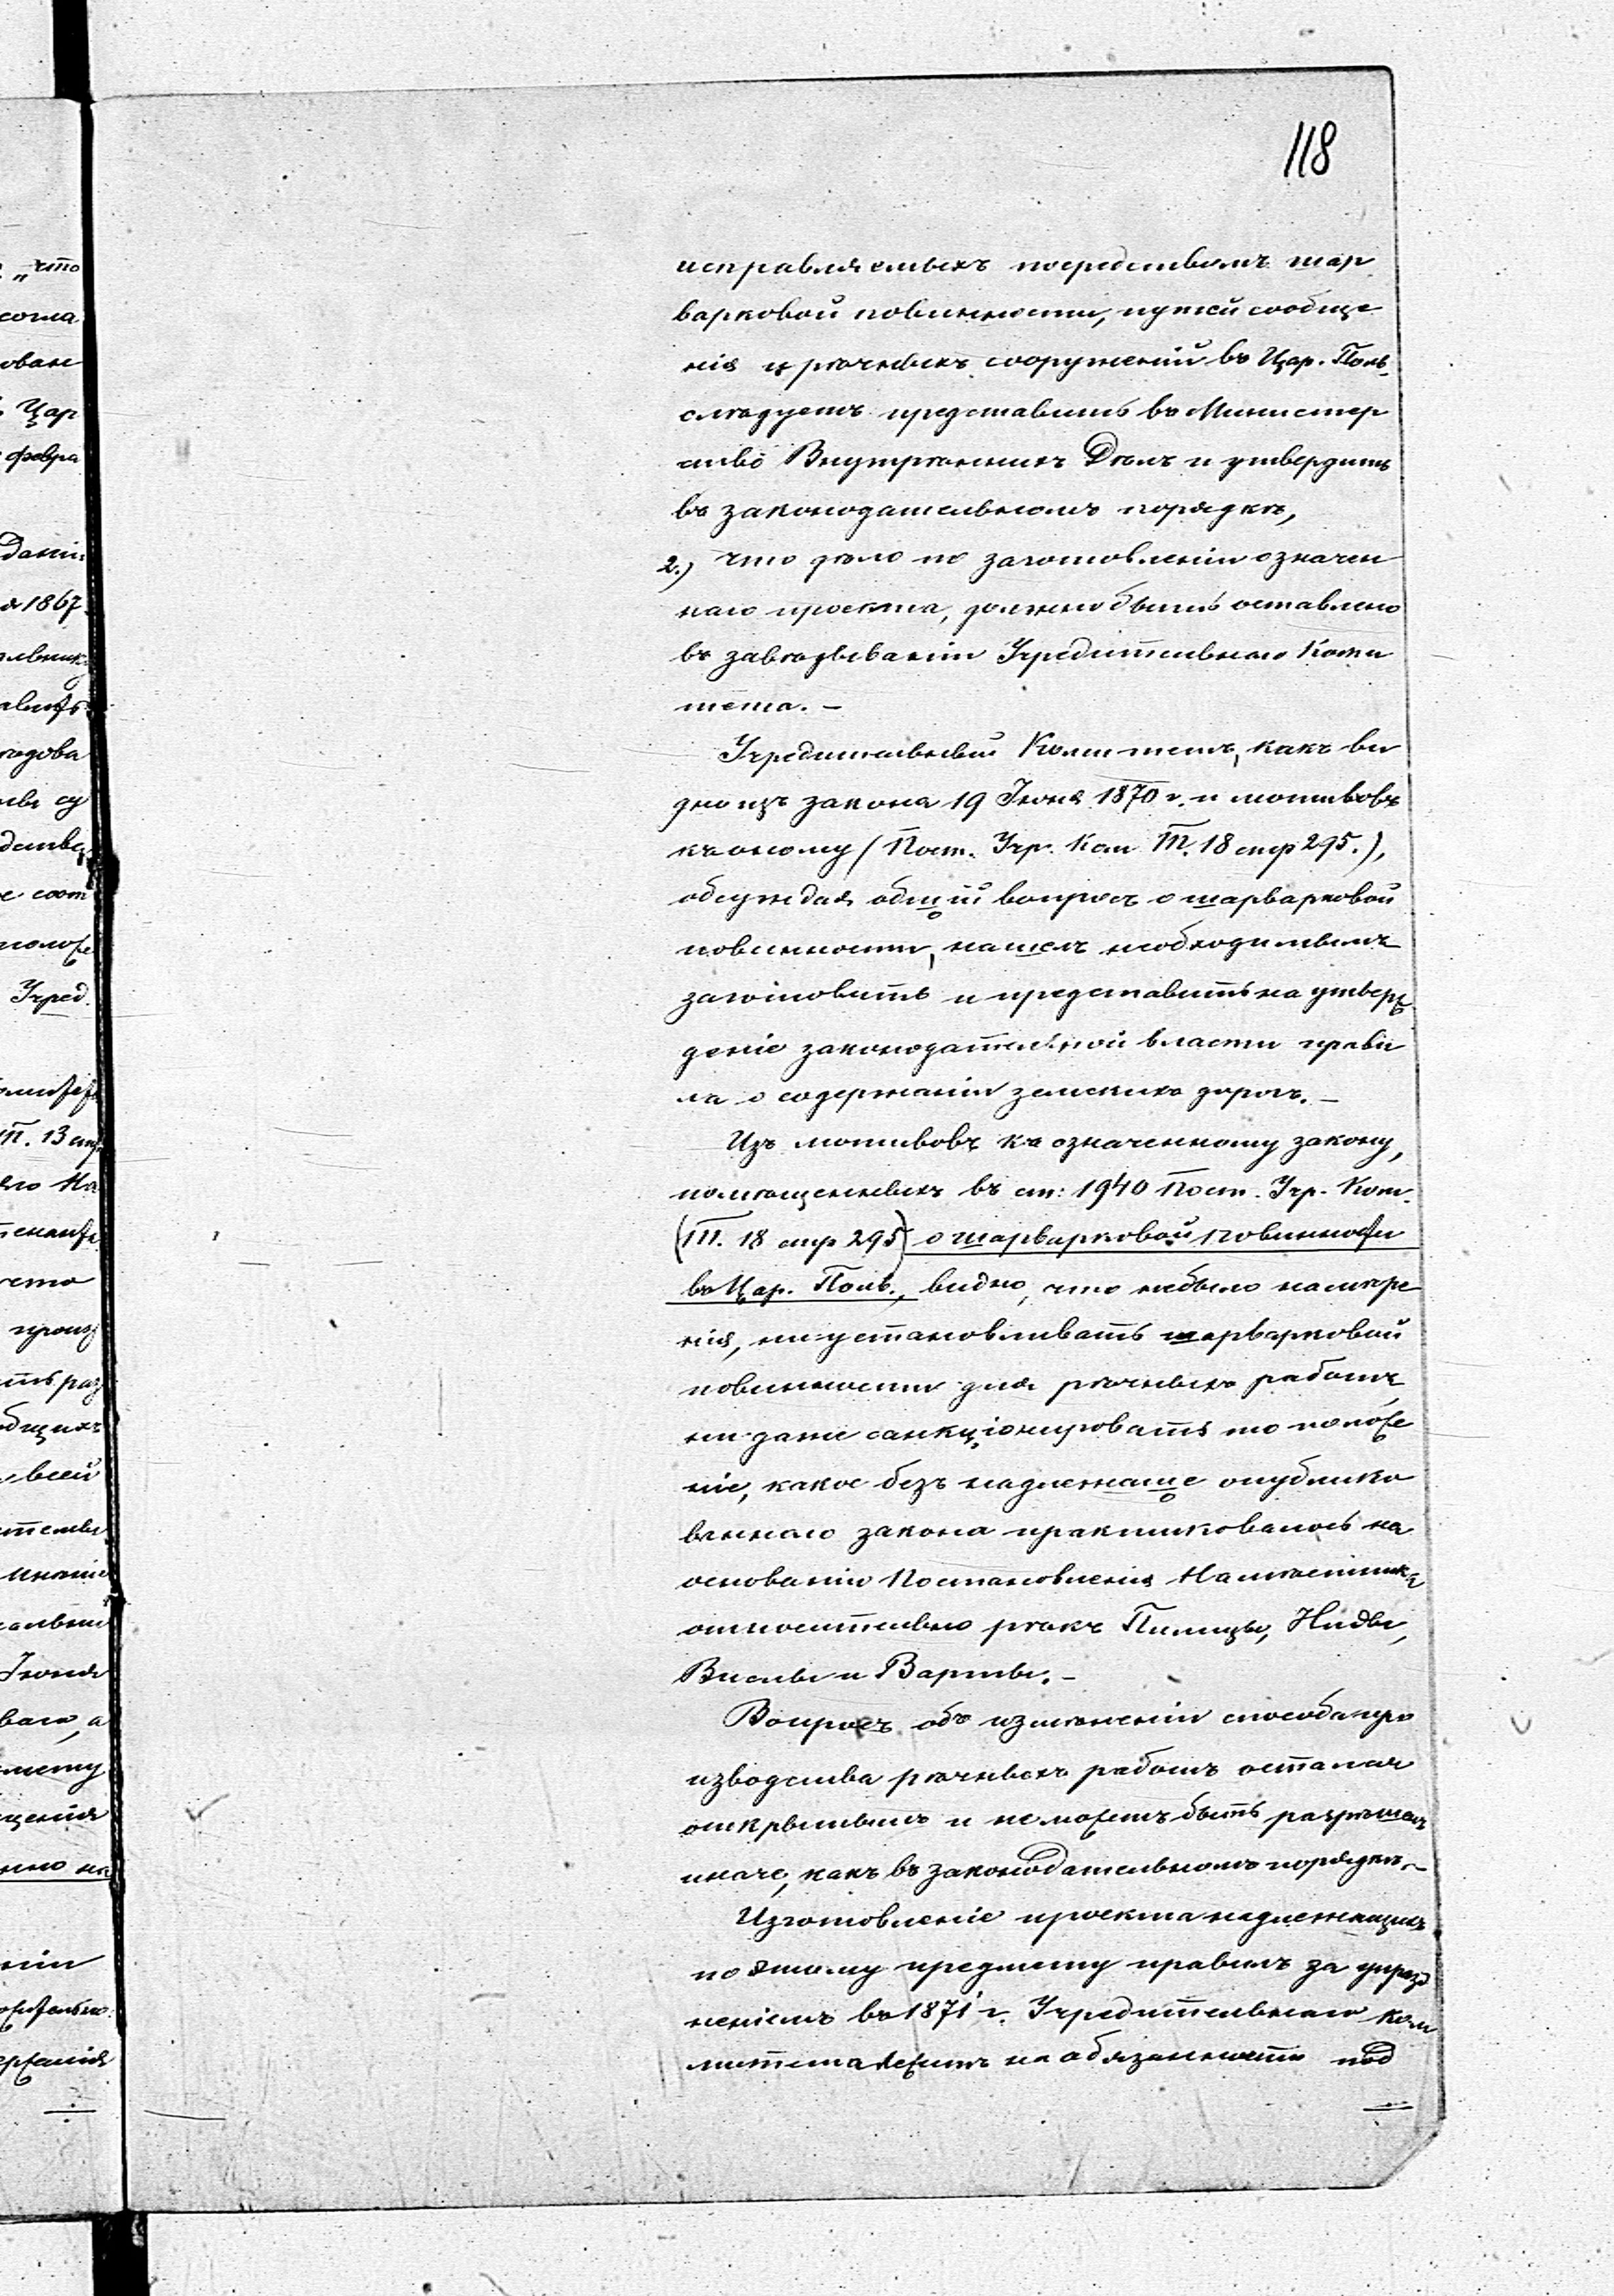 118
исправляемыхъ посредствомъ шар
варковой повинности, путей сообще
нія и рѣчныхъ сооруженій въ Цар. Поль.
слѣдуетъ представить въ Министер
ство Внутреннихъ Дѣлъ и утвердить
въ законодательномъ порядкѣ,
2.) что дѣло по заготовленіи означен
наго проекта, должно быть оставлено
въ завѣдываніи Учредительнаго Коми
тета. –
Учредительный Комитетъ, какъ ви
дно изъ закона 19 Іюня 1870 г. и мотивовъ
къ оному (Пост. Учр. Ком Т. 18 стр 295.),
обсуждая общій вопросъ о шарварковой
повинности, нашелъ необходимымъ
заготовить и представить на утверж
деніе законодательной власти прави
ла о содержаніи земскихъ дорогъ. –
Изъ мотивовъ къ означенному закону,
помѣщенныхъ въ ст: 1940 Пост. Учр. Ком.
(Т. 18 стр 295) о шарварковой повинности
въ Цар. Поль., видно, что небыло намѣре
нія, ни установливать шарварковой
повинности для рѣчныхъ работъ,
ни даже санкціонировать то положе
ніе, какое безъ надлежаще опублико
ваннаго закона практиковалось на
основаніи Постановленія Намѣстника
относительно рѣкъ Пилицы, Ниды,
Вислы и Варты. –
Вопросъ объ измѣненіи способа про
изводства рѣчныхъ работъ остался
открытымъ и не можетъ быть разрѣшенъ
иначе, какъ въ законодательномъ порядкѣ. –
Изготовленіе проекта надлежащихъ
по этому предмету правилъ за упразд
неніемъ въ 1871 г. Учредительнаго Ком
митета лежитъ на обязанности под